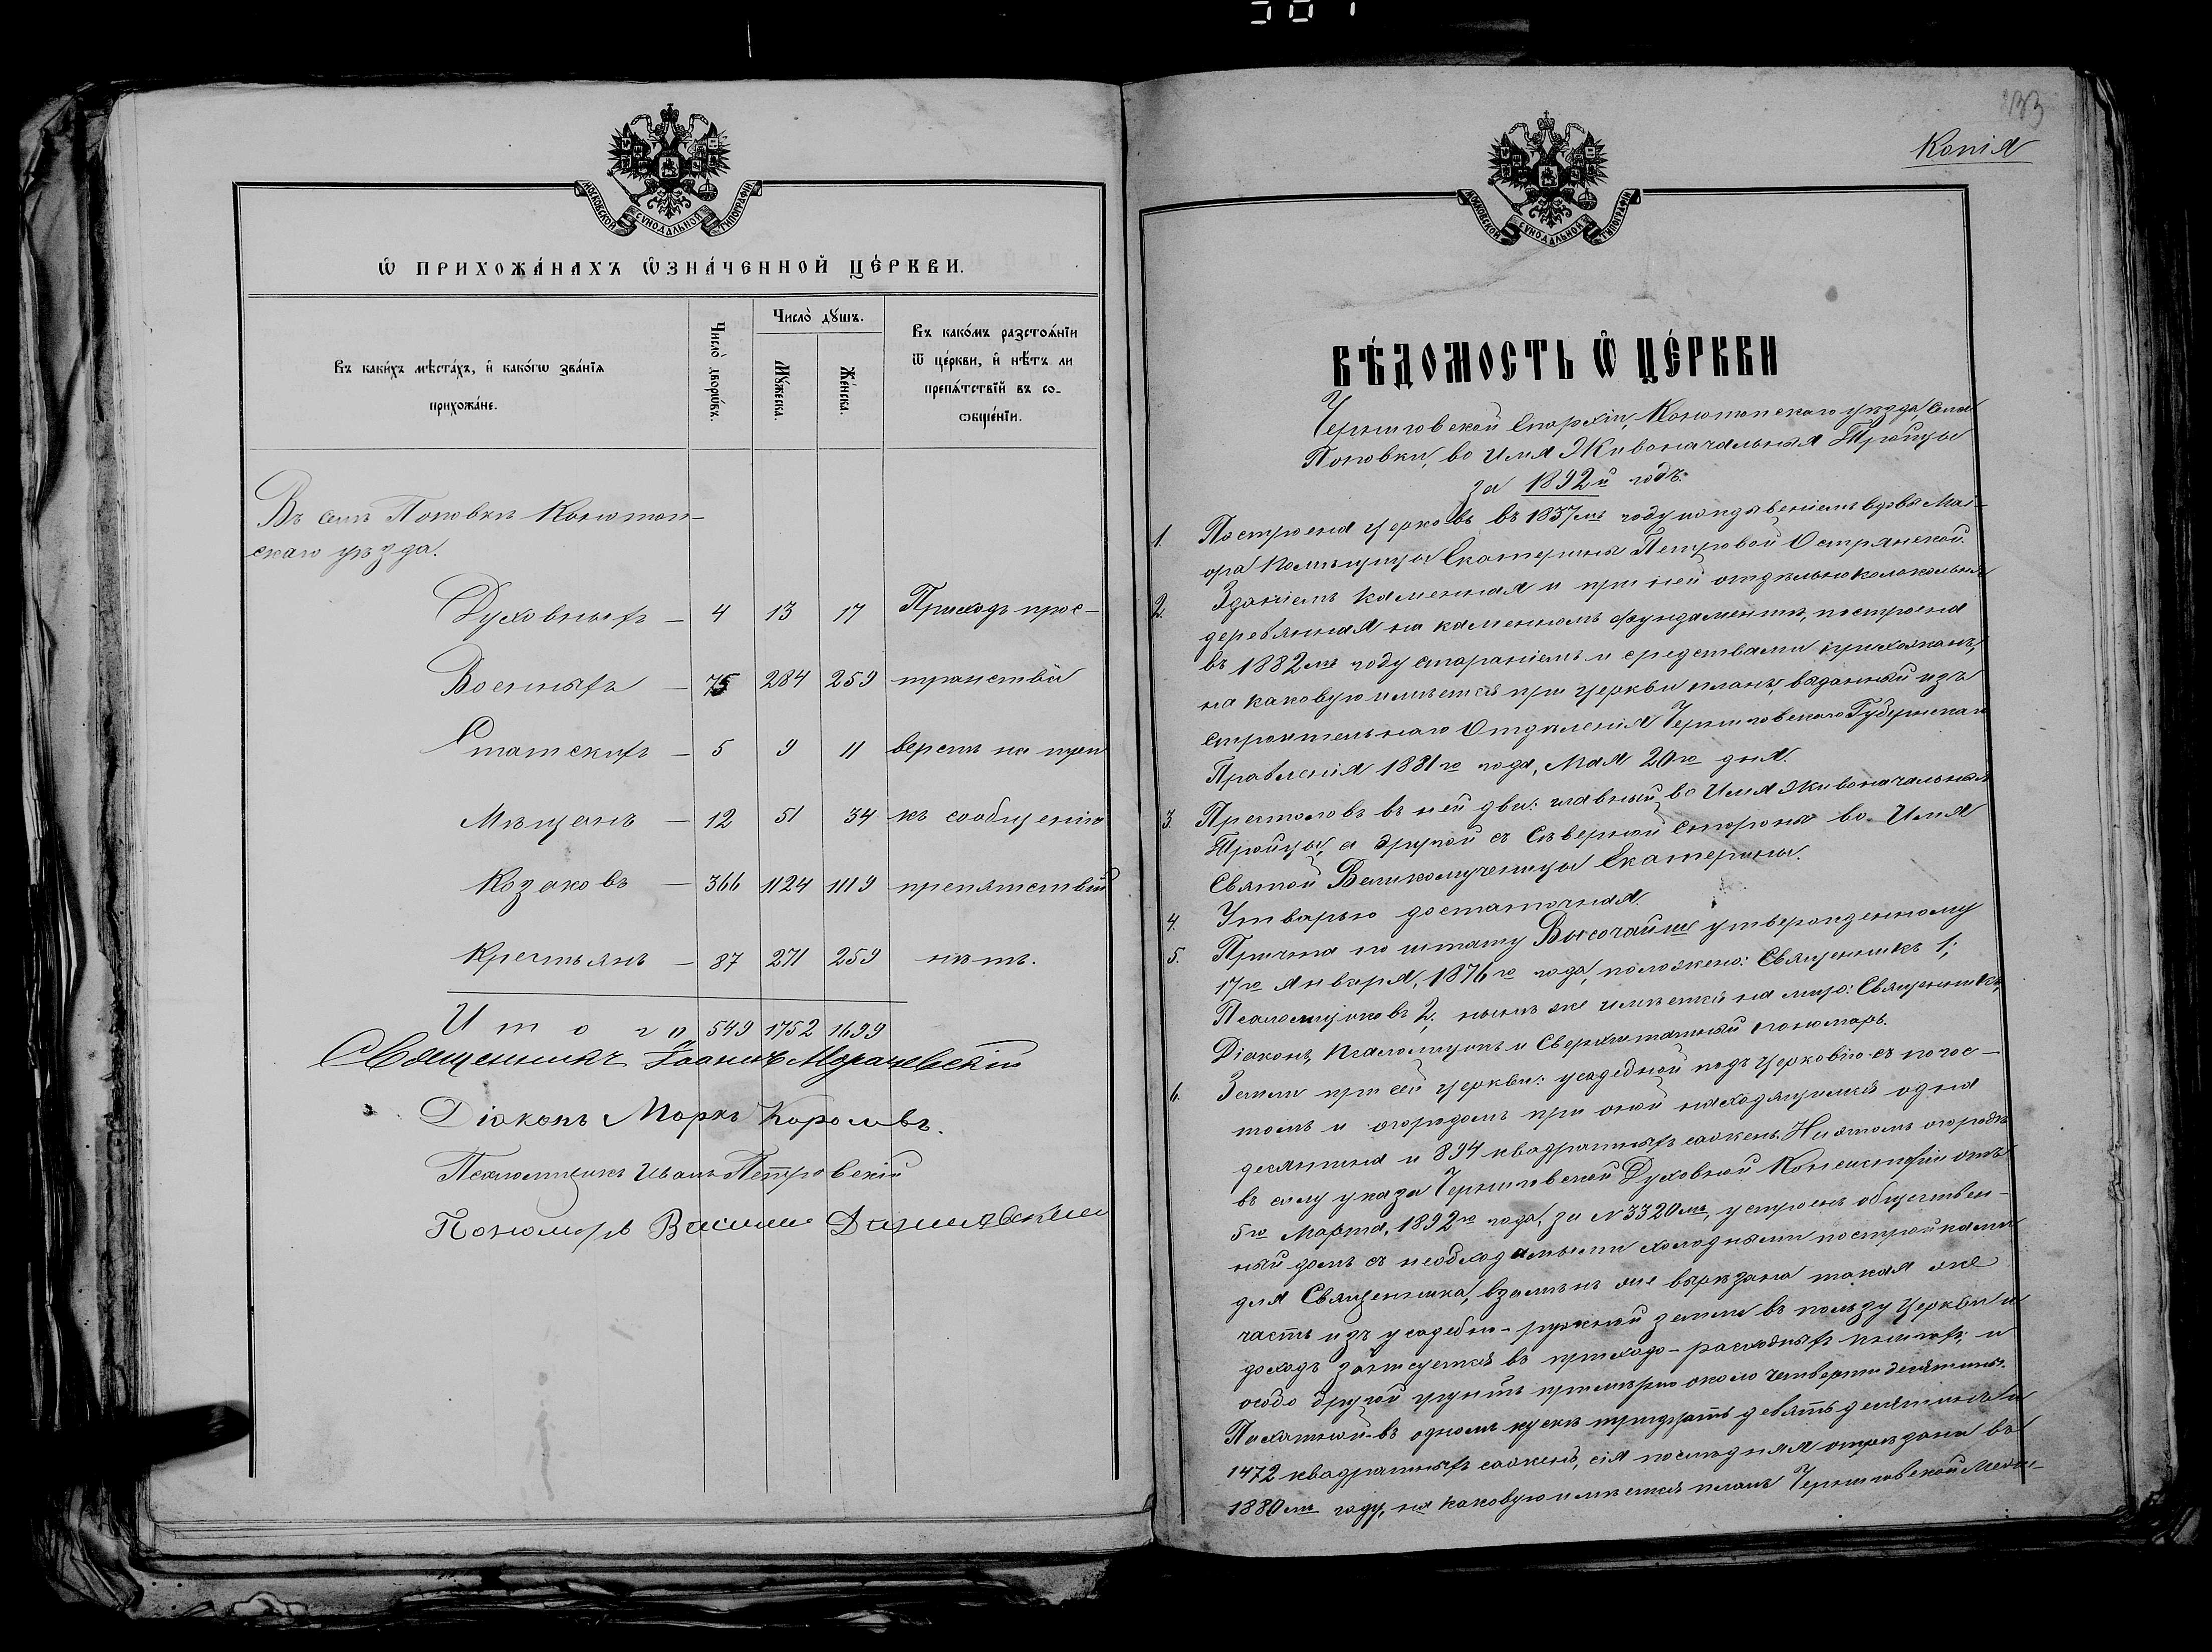 МОСКОВСКОЙ СѴНОДАЛЬНОЙ ТИПОГРАФІИ
Ѽ ПРИХОЖА́НАХЪ Ѽ҆ЗНА́ЧЕННОЙ ЦЕ́РКВИ.
Въ каки́хъ мѣста́хъ, и҆ како́гѡ зва́нїѧ прихожа́не.
Число̀ дворѡ́въ.
Число̀ дꙋ́шъ.
Мꙋ́жеска.
Же́нска.
Въ како́мъ разстоѧ́нїи
ѿ це́ркви, и҆ нѣ́тъ ли
препѧ́тствїй въ со-
ѻбще́нїи.
Въ селѣ Поповкѣ Конотоп-
скаго уѣзда.
Духовныхъ — 4 13 17 Приходъ прос-
Военныхъ — 75 284 259 транствѣ
Статскихъ — 5 9 11 верстъ на пути
Мѣщанъ — 12 51 34 къ сообщенію
Козаковъ — 366 1124 1119 препятствій
Крестьянъ — 87 271 259 нѣтъ.
Итого 549 1752 1699
Священникъ Іоаннъ Морачевскій
Діаконъ Маркъ Королевъ.
Псаломщикъ Иванъ Петровскій
Пономарь Василій
133
Копія
МОСКОВСКОЙ СѴНОДАЛЬНОЙ ТИПОГРАФІИ
ВѢ́ДОМОСТЬ Ѽ ЦЕ́РКВИ
Черниговской Епархіи, Конотопскаго уѣзда, села
Поповки, во Имя Живоначальныя Тройцы
за 1892й годъ.
1. Построена церковь въ 1837мъ году иждивеніемъ вдовы Маі-
ора помѣщицы Екатерины Петровой Острянской.
2. Зданіемъ каменная и при ней отдѣльно колокольня
деревянная на каменномъ фундаментѣ, построена
въ 1882мъ году стараніемъ и средствами прихожанъ,
на каковую имѣется при церкви планъ, выданный изъ
Строительнаго Отдѣленія Черниговскаго Губернскаго
Правленія 1881го года, Мая 20го дня.
3. Престоловъ въ ней два: главный во Имя Живоначальныя
Тройцы, а другой съ Сѣверной стороны во Имя
Святой Великомученицы Екатерины.
4. Утварью достаточная.
5. Причта по штату Высочайше утвержденному
17го Января, 1876го года, положено: Священникъ 1,
Псаломщиковъ 2, нынѣ же имѣется на лицо: Священникъ,
Діаконъ, Псаломщикъ и Сверхштатный пономарь.
6. Земли при сей церкви: усадебной подъ церковію съ погос-
томъ и огородомъ при оной находящимся одна
десятина и 894 квадратныхъ сажень. На томъ огородѣ
въ силу указа Черниговской Духовной Консисторіи отъ
5го Марта, 1892го года, за № 3320мъ, устроенъ обществен-
ный домъ съ необходимыми холодными постройками
для Священника, взамѣнъ же вырѣзана такая же
часть изъ усадебно-ружной земли въ пользу Церкви и
доходъ записуется въ приходо-расходныхъ книгахъ и
особо другой грунтъ примѣрно около четверти десятины.
Пахатной въ одномъ кускѣ тридцать девять десятинъ и
1472 квадратныхъ сажень, сія послѣдняя отрѣзана въ
1880мъ году, на каковую имѣется планъ Черниговской Меже-